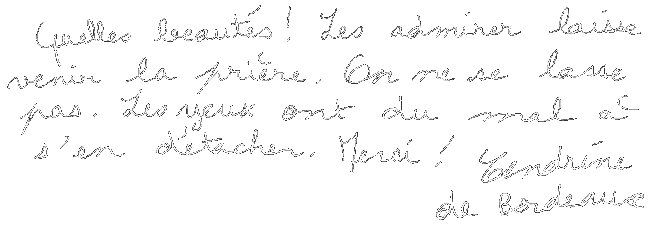 Quelles beautés ! Les admirer laisse
venir la prière. On ne se lasse
pas. Les yeux ont du mal à
s'en détacher. Merci ! Cendrine
de Bordeaux